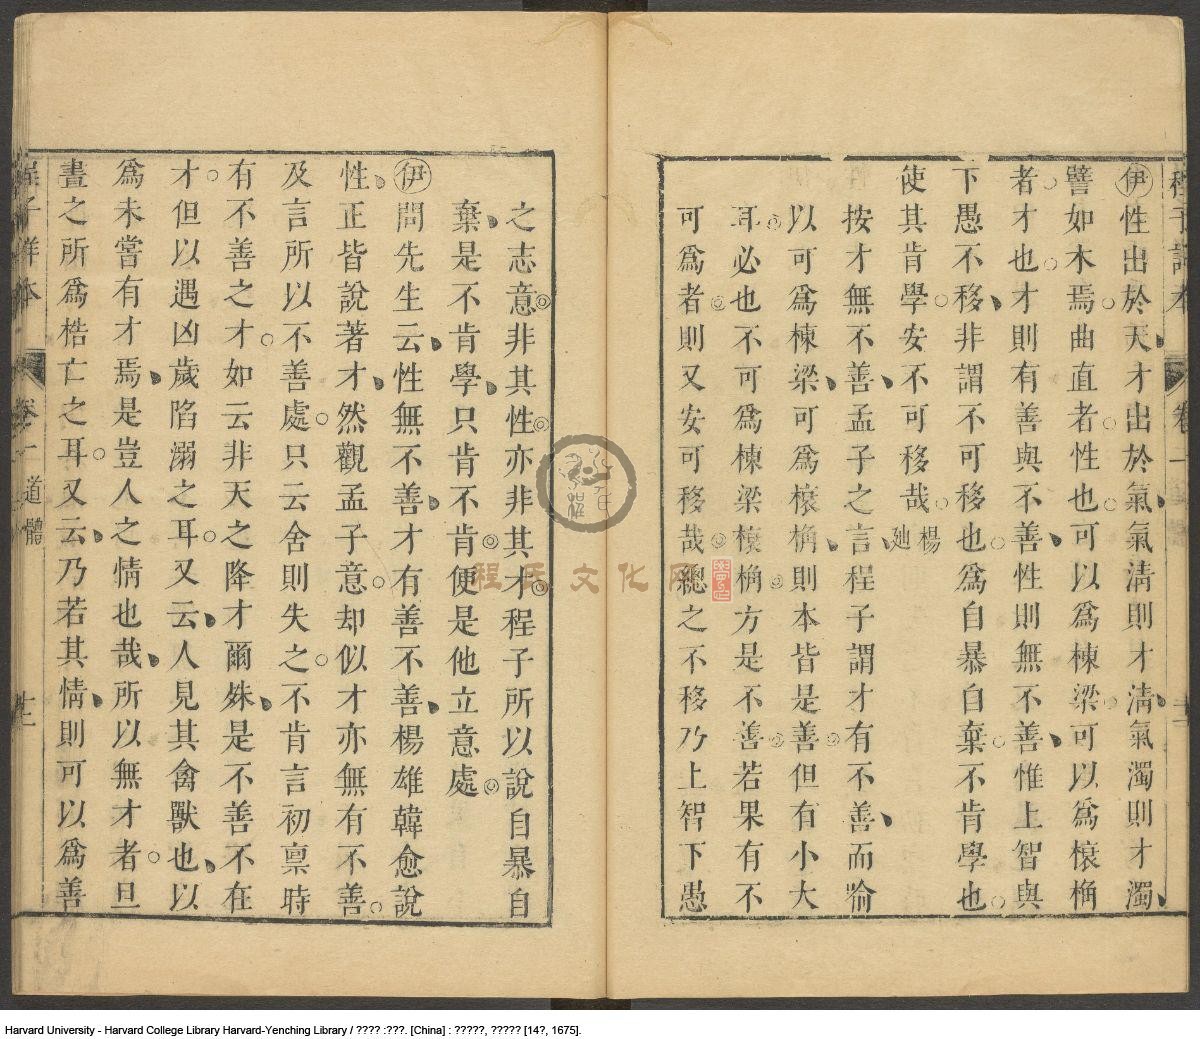 伊性出於天才出於氣氣淸則才淸氣濁則才濁
譬如木焉曲直者性也可以爲棟梁可以爲榱桷
者才也才則有善與不善性則無不善惟上智與
下愚不移非謂不可移也爲自暴自棄不肯學也
使其肯學安不可移哉 楊廸
按才無不善孟子之言程子謂才有不善而喻
以可爲棟梁可爲榱桷則本皆是善但有小大
耳必也不可爲棟梁榱桷方是不善若果有不
可爲者則又安可移哉總之不移乃上智下愚
之志意非其性亦非其才程子所以說自暴自
棄是不肯學只肯不肯便是他立意處
伊問先生云性無不善才有善不善楊雄韓愈說
性正皆說著才然觀孟子意却似才亦無有不善
及言所以不善處只云舍則失之不肯言初禀時
有不善之才如云非天之降才爾殊是不善不在
才但以遇凶歲陷溺之耳又云人見其禽獸也以
爲未嘗有才焉是豈人之情也哉所以無才者旦
晝之所爲梏亡之耳又云乃若其情則可以爲善
卷一 道體
程氏文化网
Harvard University - Harvard College Library Harvard-Yenching Library / ???? :???. [China] : ?????, ????? [14?, 1675].